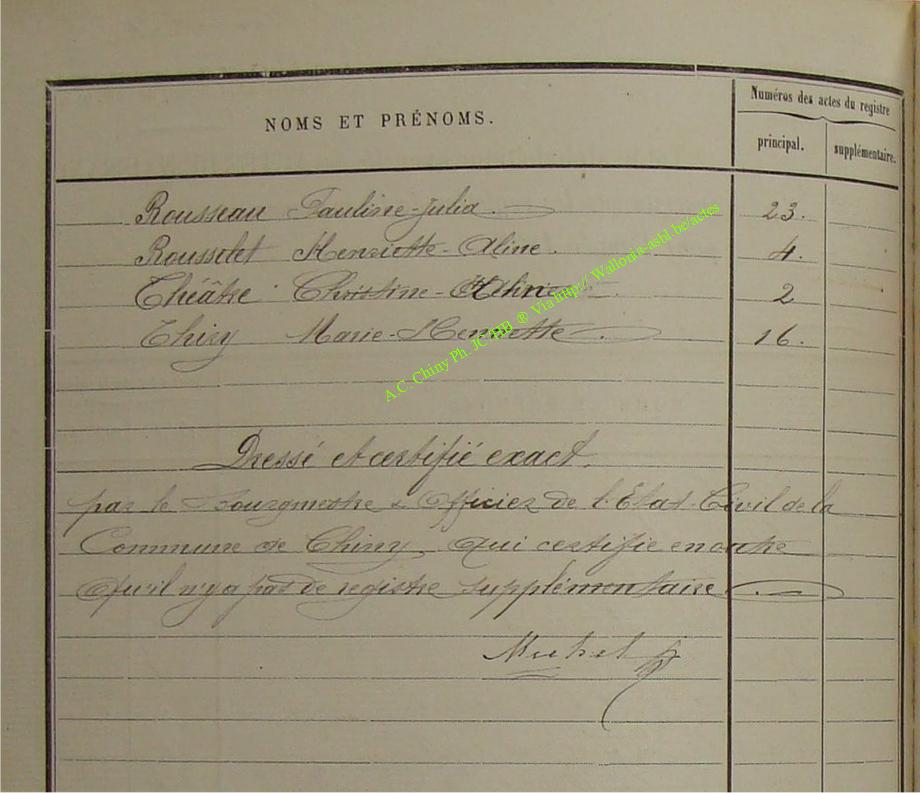 Numéros des actes du registre
NOMS ET PRÉNOMS.
principal. supplémentaire.
Rousseau Pauline-Julia. 23.
Rousselet Henriette-Aline. 4.
Théâtre Christine- 2
Thiry Marie-Henriette. 16.
A.C. Chiny Ph. JC HB ® Via http:// Wallonia-asbl be/actes
Dressé et certifié exact.
par le Bourgmestre & Officier de l'Etat-Civil de la
Commune de Chiny, qui certifie en outre
qu'il n'y a pas de registre supplémentaire.